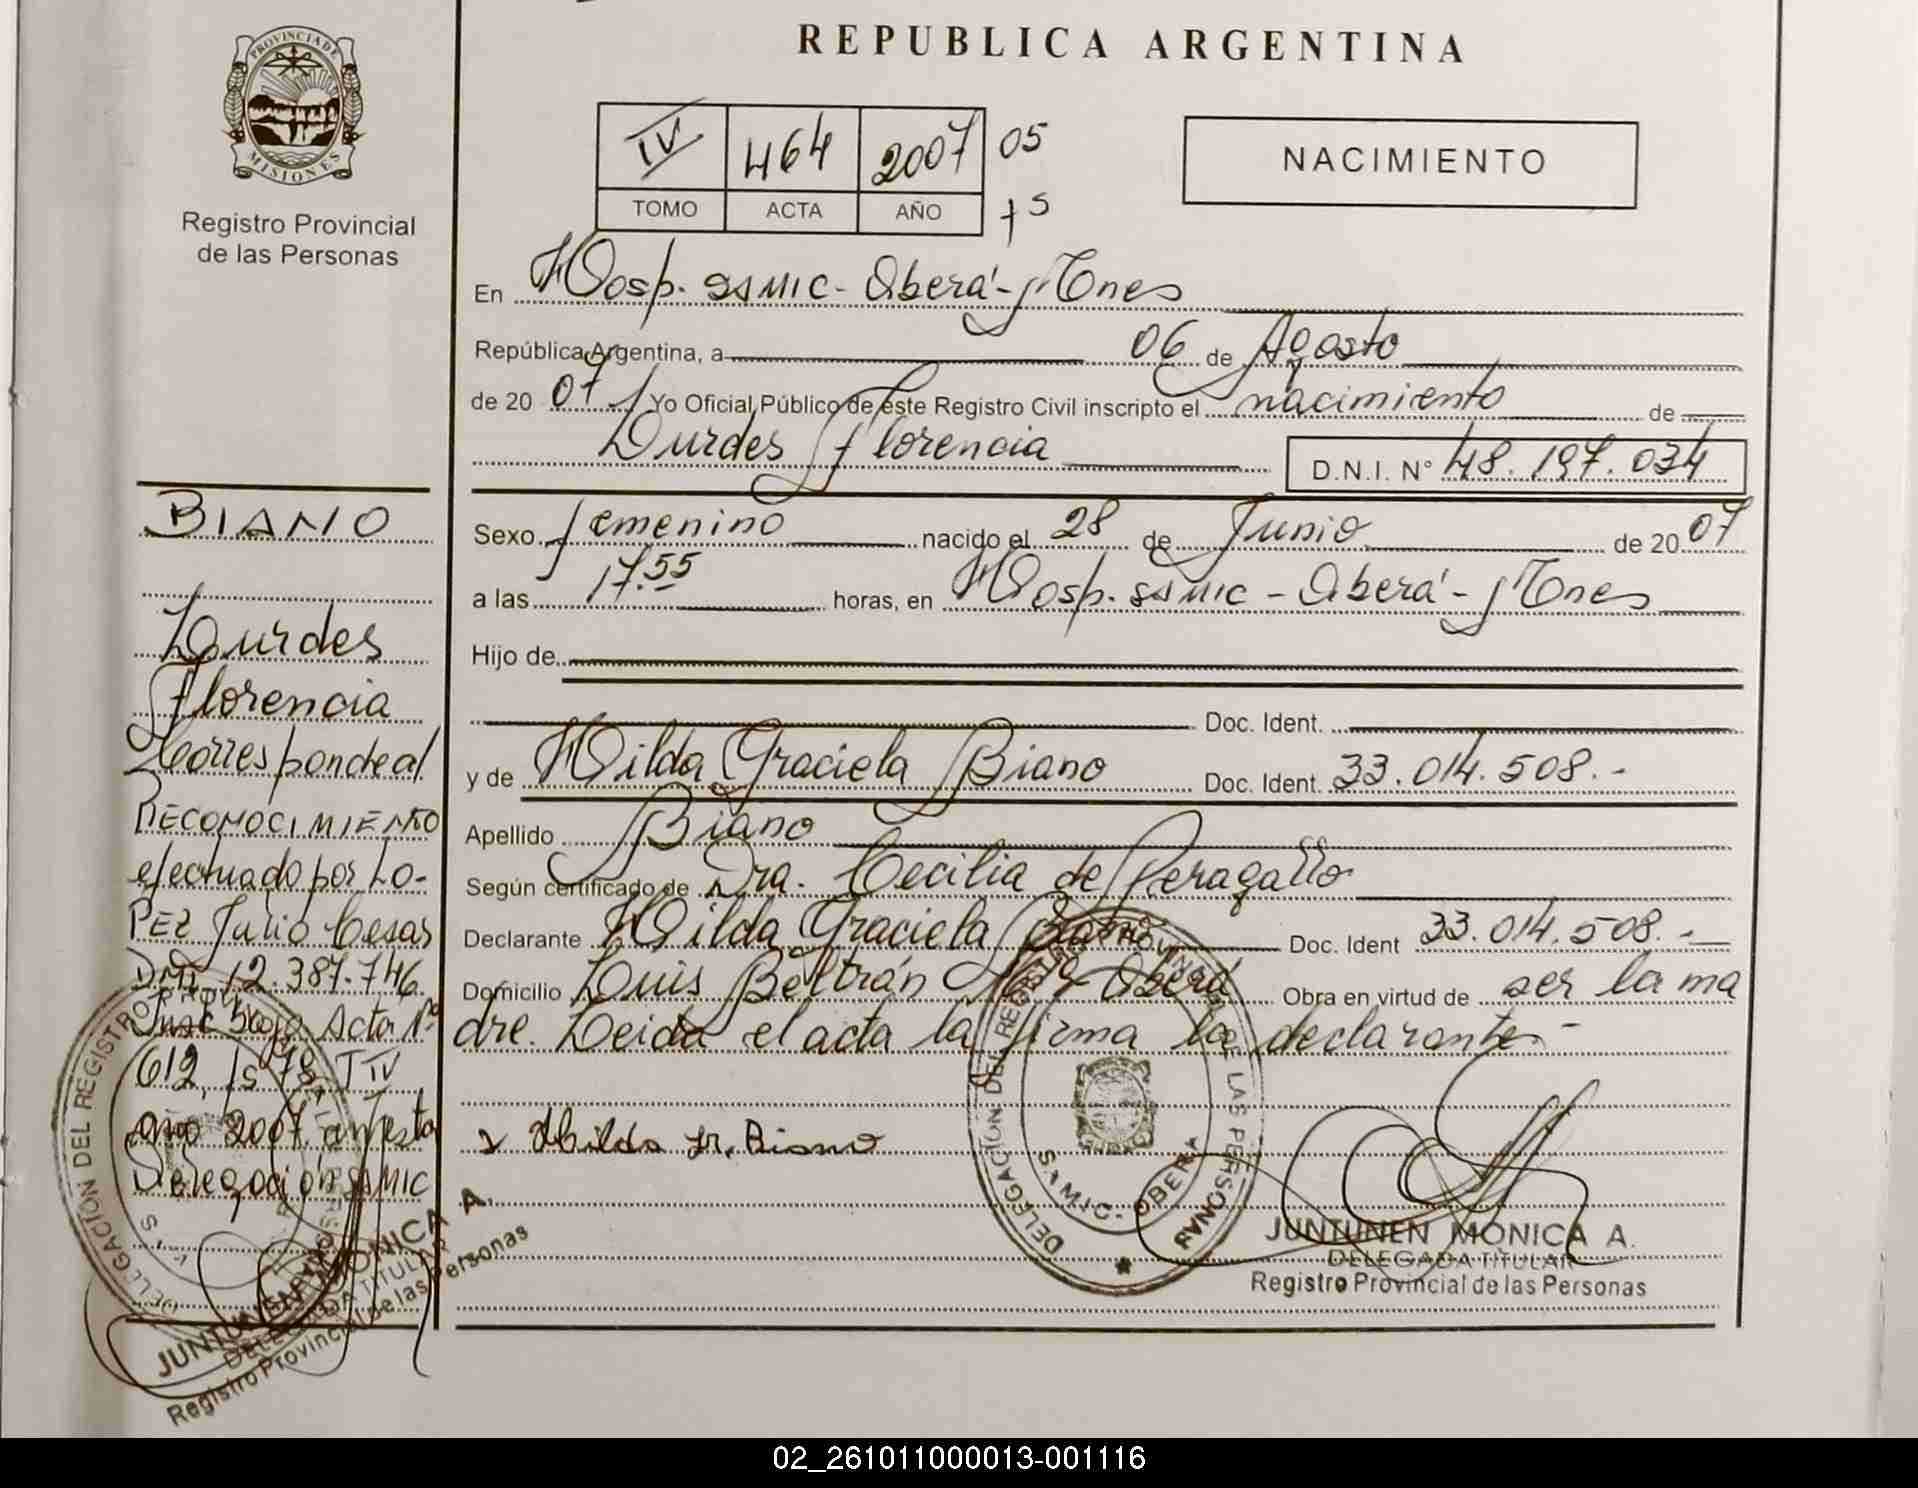 REPUBLICA ARGENTINA
PROVINCIA DE MISIONES
Registro Provincial
de las Personas
IV 464 2007 05
TOMO ACTA AÑO
NACIMIENTO
En Hosp. SAMIC - Oberá - Mnes
República Argentina, a 06 de Agosto
de 2007 Yo Oficial Público de este Registro Civil inscripto el nacimiento de
Lourdes Florencia D.N.I. N° 48.197.034
Sexo femenino nacido el 28 de Junio de 2007
a las 17.55 horas, en Hosp. SAMIC - Oberá - Mnes
Hijo de
Doc. Ident.
y de Hilda Graciela Biano Doc. Ident. 33.014.508.-
Apellido Biano
Según certificado de Dra. Cecilia de Peragallo
Declarante Hilda Graciela Biano Doc. Ident 33.014.508.-
Domicilio Luis Beltrán Oberá Obra en virtud de ser la ma
dre. Leida el acta la firma la declarante-
Hilda Gr. Biano
DELEGACIÓN DEL REGISTRO PROVINCIAL DE LAS PERSONAS
S.A.M.I.C. - OBERA
JUNTUNEN MONICA A.
DELEGADA TITULAR
Registro Provincial de las Personas
BIANO
Lourdes
Florencia
Corresponde al
RECONOCIMIENTO
efectuado por LO-
PEZ Julio Cesar
DNI 12.387.746
Acta Nº
612, TIV
año 2007 an/esta
Delegación SAMIC
DELEGACIÓN DEL REGISTRO
JUNTUNEN MONICA A.
DELEGADA TITULAR
Registro Provincial de las Personas
02_261011000013-001116